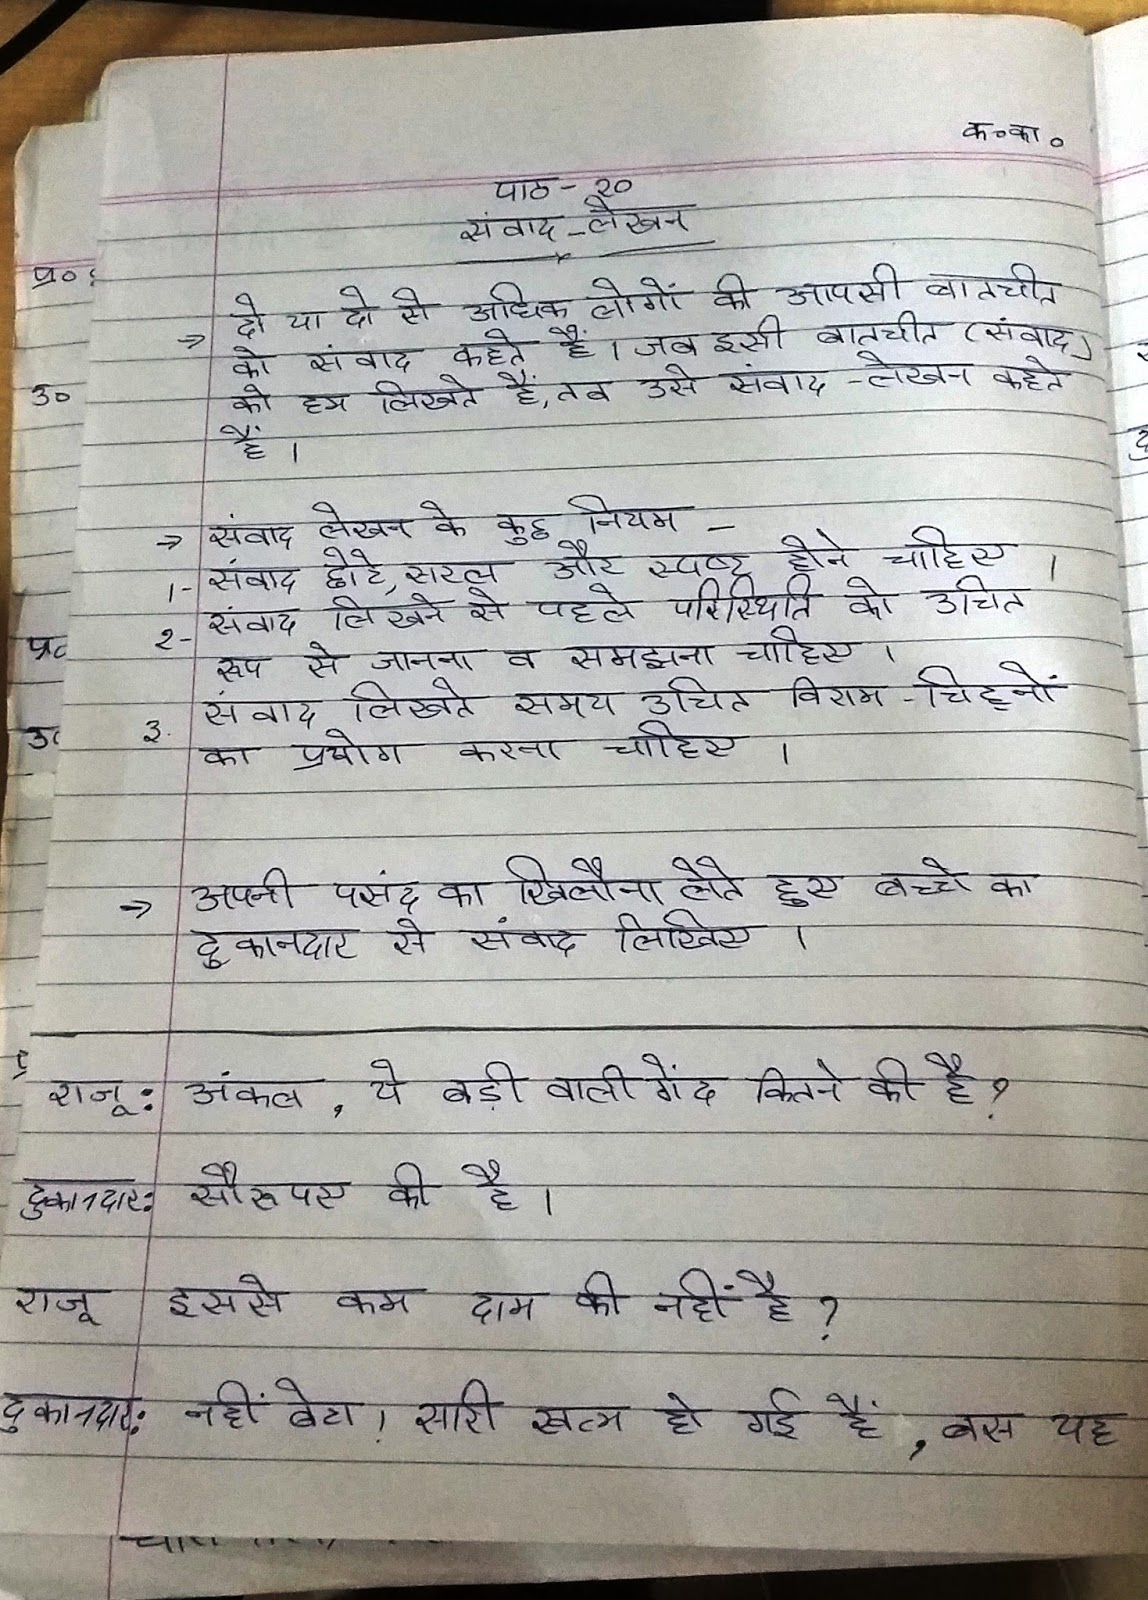 क०का०
पाठ - २०
संवाद - लेखन
→ दो या दो से अधिक लोगों की आपसी बातचीत
को संवाद कहते हैं। जब इसी बातचीत (संवाद)
को हम लिखते हैं, तब उसे संवाद - लेखन कहते
हैं।
→ संवाद लेखन के कुछ नियम -
1- संवाद छोटे, सरल और स्पष्ट होने चाहिए।
2- संवाद लिखने से पहले परिस्थिति को उचित
रूप से जानना व समझना चाहिए।
3. संवाद लिखते समय उचित विराम - चिह्नों
का प्रयोग करना चाहिए।
→ अपनी पसंद का खिलौना लेते हुए बच्चे का
दुकानदार से संवाद लिखिए।
राजू: अंकल, ये बड़ी वाली गेंद कितने की है?
दुकानदार: सौ रूपए की है।
राजू इससे कम दाम की नहीं है?
दुकानदार: नहीं बेटा! सारी खत्म हो गई हैं, बस यह
प्र०
उ०